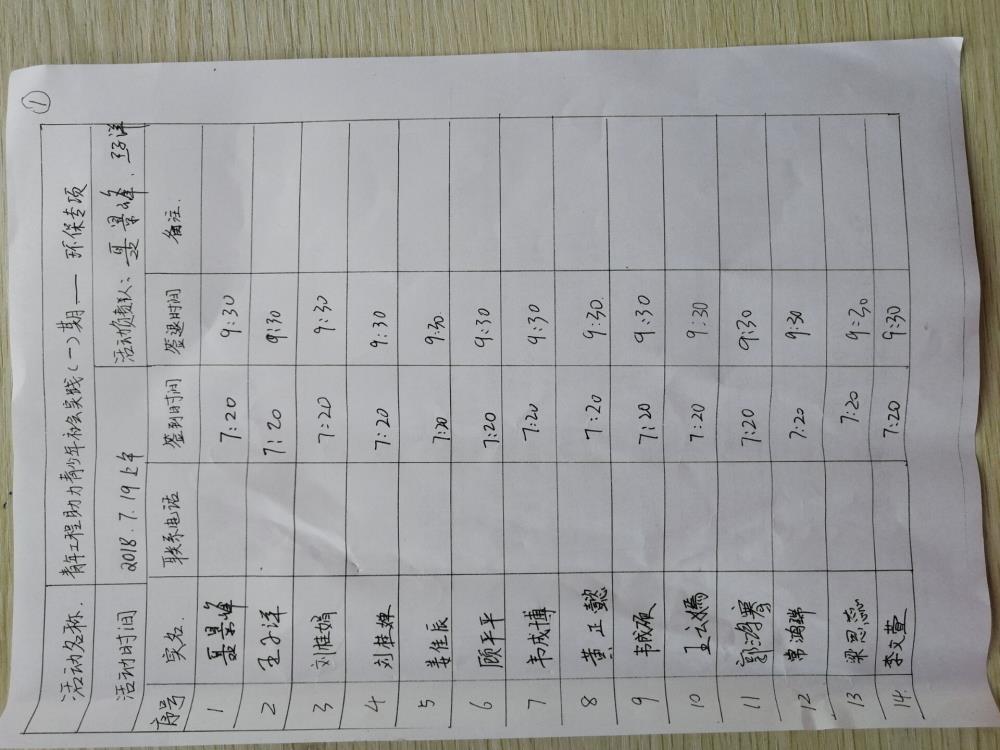 ①
活动名称. 青年工程助力青少年社会实践(一)期——环保专项
活动时间 2018.7.19上午 活动负责人: 聂景峰、王子洋
序号 实名. 联系电话 签到时间 签退时间 备注.
1 聂景峰 7:20 9:30
2 王子洋 7:20 9:30
3 刘桂娟 7:20 9:30
4 刘桂 7:20 9:30
5 姜佳辰 7:20 9:30
6 顾平平 7:20 9:30
7 韦成博 7:20 9:30
8 黄正懿 7:20 9:30
9 韦成 7:20 9:30
10 王文嫣 7:20 9:30
11 郭鸿赛 7:20 9:30
12 常鸿瑞 7:20 9:30
13 梁思蕊 7:20 9:30
14. 李文萱 7:20 9:30